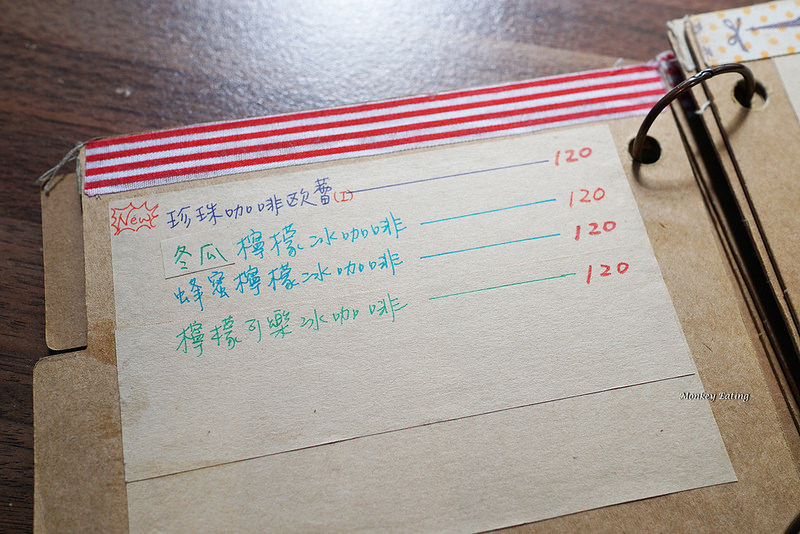 New 珍珠咖啡欧蕾(I) 120
冬瓜檸檬冰咖啡 120
蜂蜜檸檬冰咖啡 120
檸檬可樂冰咖啡 120
Monkey Eating